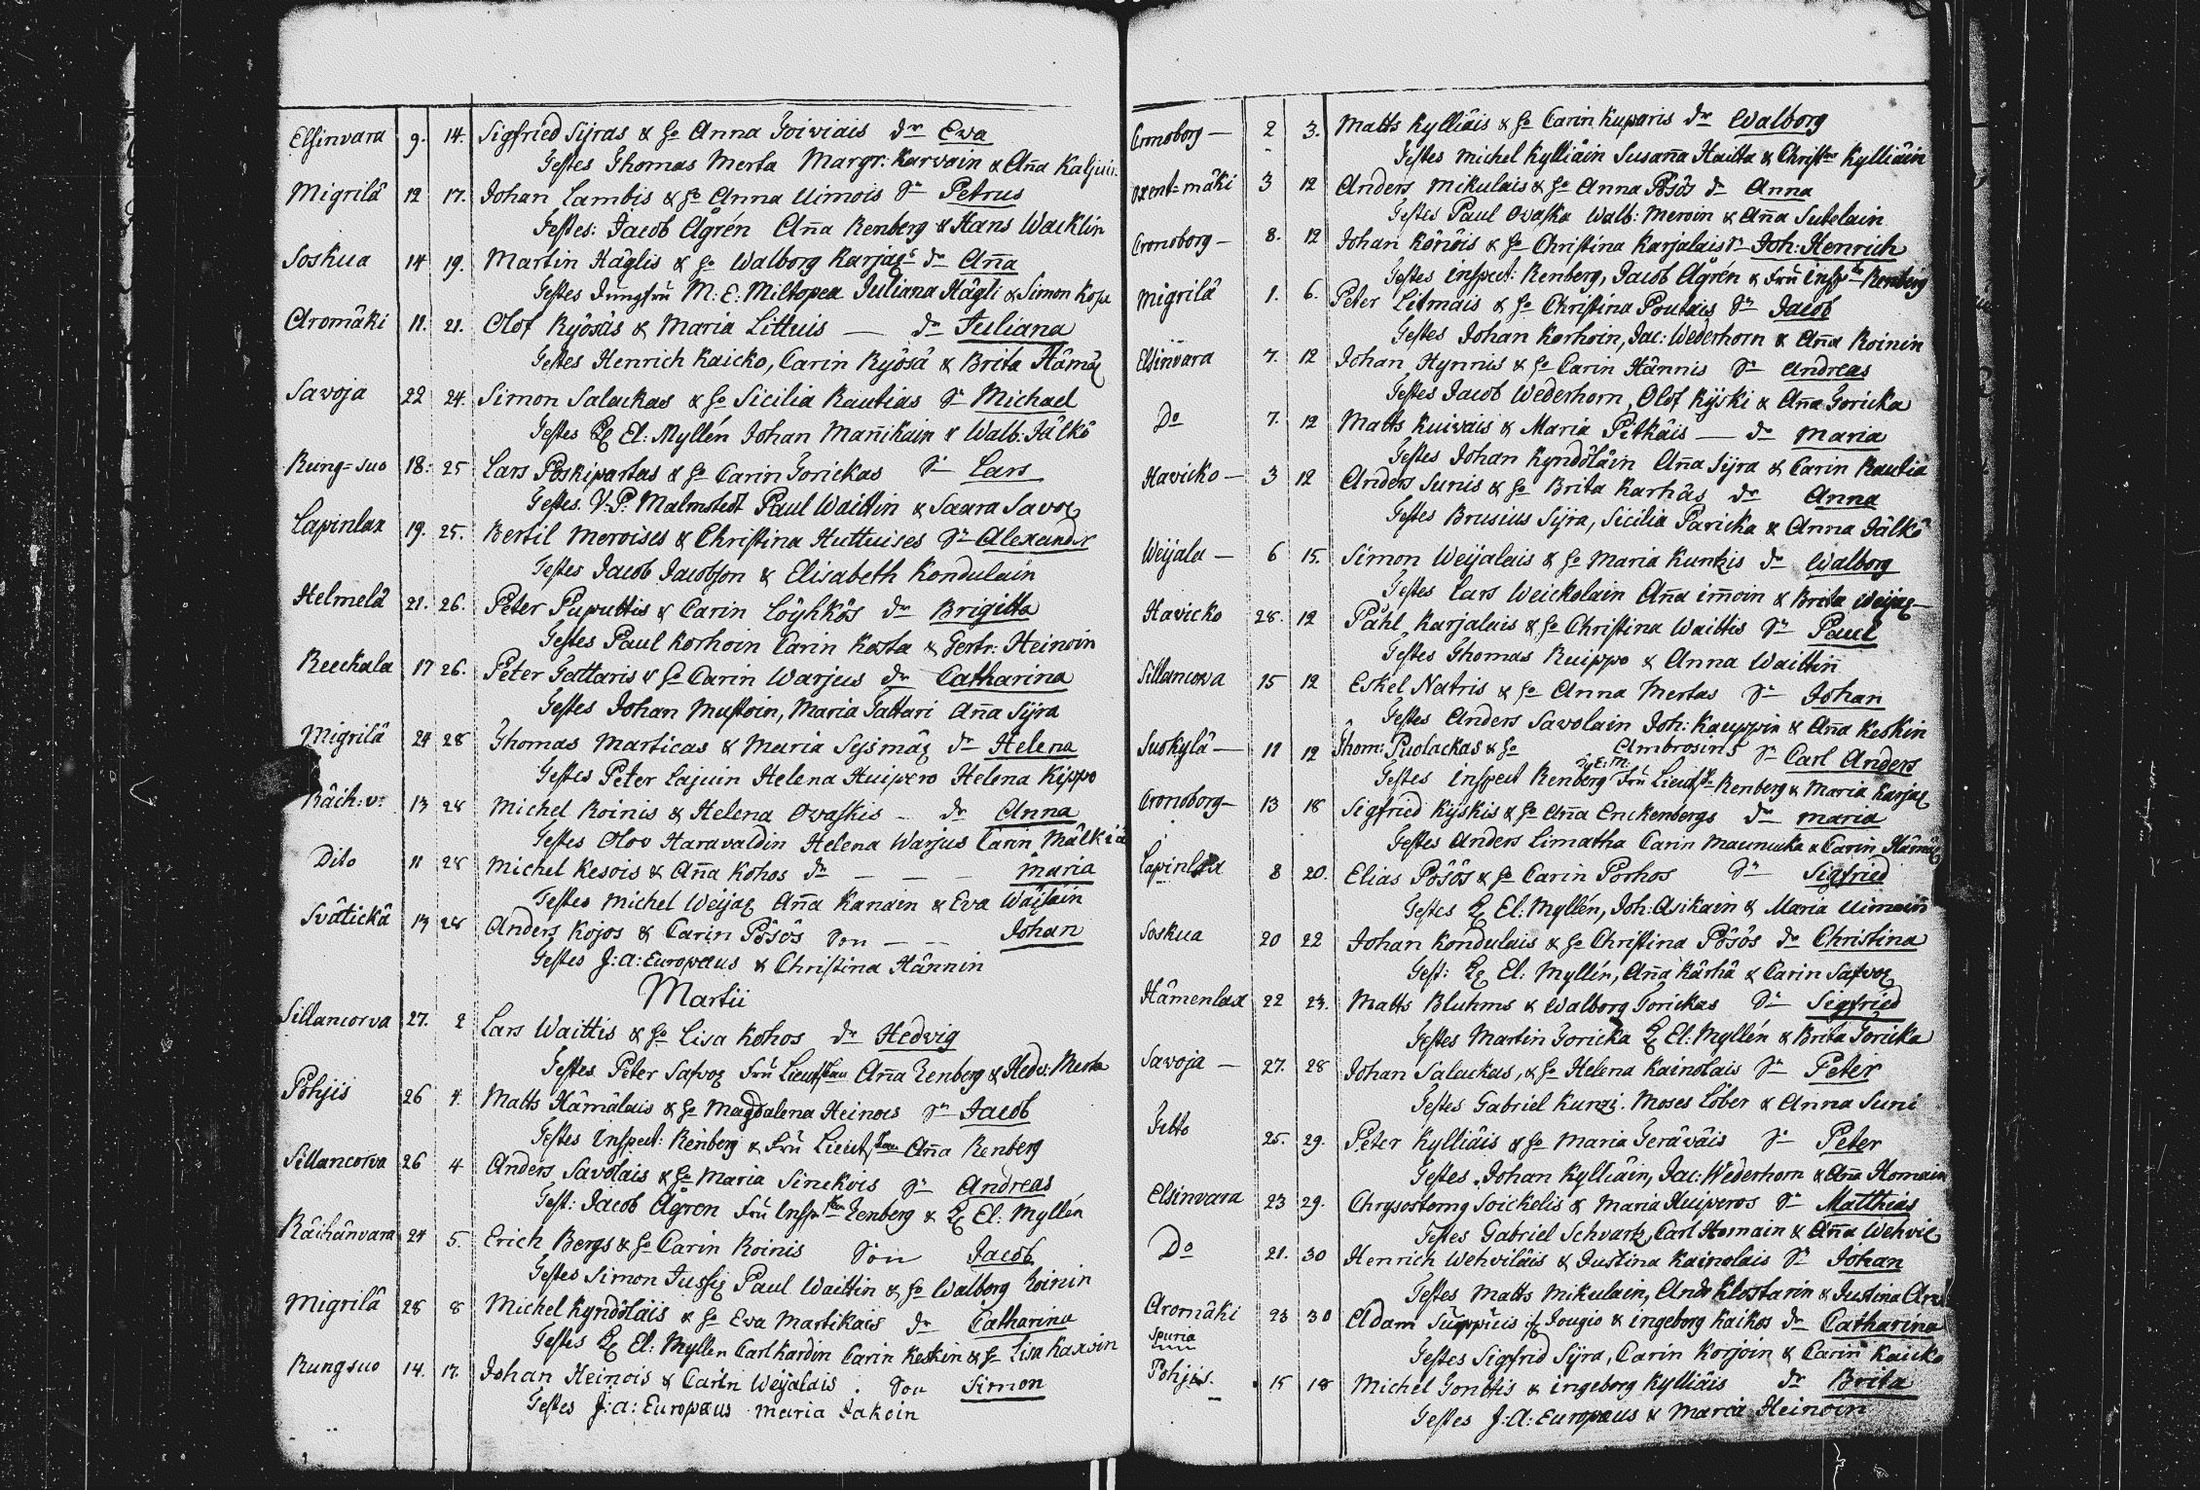 Elsinvara 9. 14. Sigfried Sijras & H:o Anna Toiviais dr Eva
Testes Thomas Merta Margr: Karvain & Aña Kaljui:
Migrilä 12 17. Johan Lambis & H:o Anna Uimois Sn Petrus
Testes: Jacob Ågrén Aña Renberg & Hans Wacklin
Soskua 14 19. Martin Häglis & H:o Walborg Karjas dr Aña
Testes Jungfrü M: E: Miltopea Juliana Hägli & Simon Kopa
Aromäki 11. 21. Olof Ryösäs & Maria Littuis — dr Juliana
Testes Henrich Kaicko, Carin Ryösä & Brita Hämäl
Savoja 22 24. Simon Salackas & H:o Sicilia Rautias Sn Michael
Testes El: Myllén Johan Mañikain & Walb: Jälkö
Rung=suo 18. 25 Lars Poskipartas & H:o Carin Torickas Sn Lars
Testes. V: P: Malmstedt Paul Waittin & Saara Savol
Lapinlax 19. 25. Bertil Meroises & Christina Huttuises Sn Alexandr
Testes Jacob Jacobson & Elisabeth Kondulain
Helmelä 21. 26. Peter Puputtis & Carin Löyhkös dr Brigitta
Testes Paul Korhoin Carin Kosta & Gertr: Heinoin
Reeckala 17 26. Peter Tattaris & H:o Carin Warjus dr Catharina
Testes Johan Mustoin, Maria Tattari Aña Sijra
Migrilä 24 28 Thomas Marticas & Maria Sysmäl dr Helena
Testes Peter Lajuin Helena Huipero Helena Kippo
Räih: v: 13 28 Michel Roinis & Helena Ovaskis — dr Anna
Testes Olov Haravaldin Helena Warjus Carin Mälkiä
Dito 11 28 Michel Kesois & Aña Kohos dr — — — Maria
Testes Michel Weijal Aña Kanain & Eva Wäisäin
Svätickä 13 28 Anders Kojos & Carin Pösös Son — — Johan
Testes J: A: Europæus & Christina Hännin
Martii
Sillancorva 27. 2 Lars Waittis & H:o Lisa Kohos dr Hedvig
Testes Peter Safvol Frü Lieut Aña Renberg & Hedv: Merta
Pohjis 26 4. Matts Hämälais & H:o Magdalena Heinois Sn Jacob
Testes Inspect: Renberg & Frü Lieut Aña Renberg
Sillancorva 26 4 Anders Savolais & H:o Maria Sinckois Sn Andreas
Test: Jacob Ågren Frü Insp Renberg & El: Myllén
Räihänvara 24 5. Erich Bergs & H:o Carin Roinis Son Jacob
Testes Simon Jussil Paul Waittin & H:o Walborg Roinin
Migrilä 28 8 Michel Kyndöläis & H:o Eva Martikais dr Catharina
Testes El: Myllen Carl Kardin Carin Keskin & H:o Lisa Karvin
Rungsuo 14. 17. Johan Heinois & Carin Weijalais. Son Simon
Testes J: A: Europæus Maria Jakoin
Cronoborg — 2 3. Matts Kylliäis & H:o Carin Kuparis dr Walborg
Testes Michel Kylliäin Susaña Haitta & Christ Kylliäin
Oxent=mäki 3 12 Anders Mikulais & H:o Anna Pösös dr Anna
Testes Paul Ovaska Walb: Meroin & Aña Sutelain
Cronoborg — 8. 12 Johan Könöis & H:o Christina Karjalais Sn Joh: Henrich
Testes Inspect: Renberg, Jacob Ågrén & Frü Insp Renberg
Migrilä 1. 6. Peter Litmäis & H:o Christina Poutais Sn Jacob
Testes Johan Korhoin, Jac: Wederhorn & Aña Roinin
Elsinvara 7. 12 Johan Hynnis & H:o Carin Hännis Sn Andreas
Testes Jacob Wederhorn, Olof Kyski & Aña Toricka
Do 7. 12 Matts Kuivais & Maria Pitkäis — dr Maria
Testes Johan Kyndöläin Aña Sijra & Carin Rautia
Havicko — 3 12 Anders Sunis & H:o Brita Karhäs dr Anna
Testes Brusius Sijra, Sicilia Paricka & Anna Jälkö
Weijala — 6 15. Simon Weijalais & H:o Maria Kuntzis dr Walborg
Testes Lars Weickolain Aña Imoin & Brita Weijal
Havicko 28. 12 Påhl Karjalais & H:o Christina Waittis Sn Paul
Testes Thomas Kuippo & Anna Waittiñ
Sillancorva 15 12 Eskel Natris & H:o Anna Mertas Sn Johan
Testes Anders Savolain Joh: Kauppin & Aña Keskin
Suskylä — 11 12 Thom: Puolackas & H:o Ambrosins Sn Carl Anders
Testes Inspect Renberg Frü Lieut Renberg & Maria Karjal
Cronoborg — 13 18 Sigfried Kyskis & H:o Aña Enckenbergs dr Maria
Testes Anders Limatka Carin Maunucka & Carin Hämäl
Lapinlax 8 20. Elias Pösös & H:o Carin Porhos Sn Sigfried
Testes El: Myllén, Joh: Asikain & Maria Uimoiñ
Soskua 20 22 Johan Kondulais & H:o Christina Pösös dr Christina
Test: El: Myllén, Aña Kärhä & Carin Safvol
Hämenlax 22 23. Matts Bluhms & Walborg Torickas Sn Sigfried
Testes Martin Toricka El: Myllén & Brita Toricka
Savoja — 27. 28 Johan Salackas, & H:o Helena Kainolais Sn Peter
Testes Gabriel Kunzi. Moses Löber & Anna Suni
Jutto 25. 29. Peter Kylliäis & H:o Maria Teräväis Sn Peter
Testes Johan Kylliäin, Jac: Wederhorn & Aña Homain
Elsinvara 23 29. Chrysostomg Soickelis & Maria Huiperos Sn Matthias
Testes Gabriel Schvartz, Carl Homain & Aña Wehvil
Do 21. 30 Henrich Wehviläis & Justina Kainolais Sn Johan
Testes Matts Mikulain, And: Klostarin & Justina
Aromäki 23 30 Adam Tuppuis Jougio & Ingeborg Kaikos dr Catharina
Spuria
Testes Sigfrid Sijra, Carin Korjoin & Carin Kaicko
Pohjis. 15 18 Michel Tonttis & Ingeborg Kylliäis dr Brita
Testes J: A: Europæus & Maria Heinoin